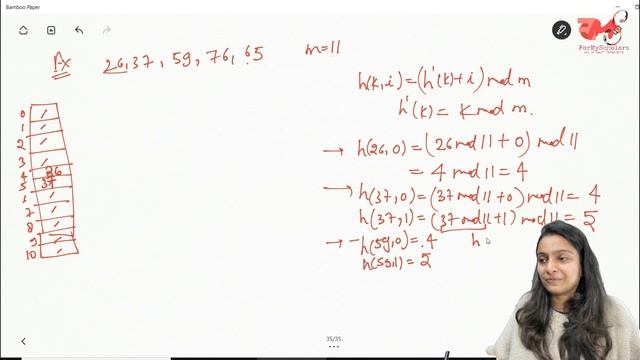 Bamboo Paper
Ex 26, 37, 59, 76, 65 m=11
RMS
ForMyScholars
h(k,i) = (h'(k)+i) mod m
h'(k) = k mod m.
→ h(26,0) = (26 mod 11 + 0) mod 11
= 4 mod 11 = 4
→ h(37,0) = (37 mod 11 + 0) mod 11 = 4
h(37,1) = (37 mod 11 + 1) mod 11 = 5
→ h(59,0) = 4 h
h(59,1) = 5
0 /
1 /
2 /
3 /
4 26
5 37
6 /
7 /
8 /
9 /
10 /
35/35